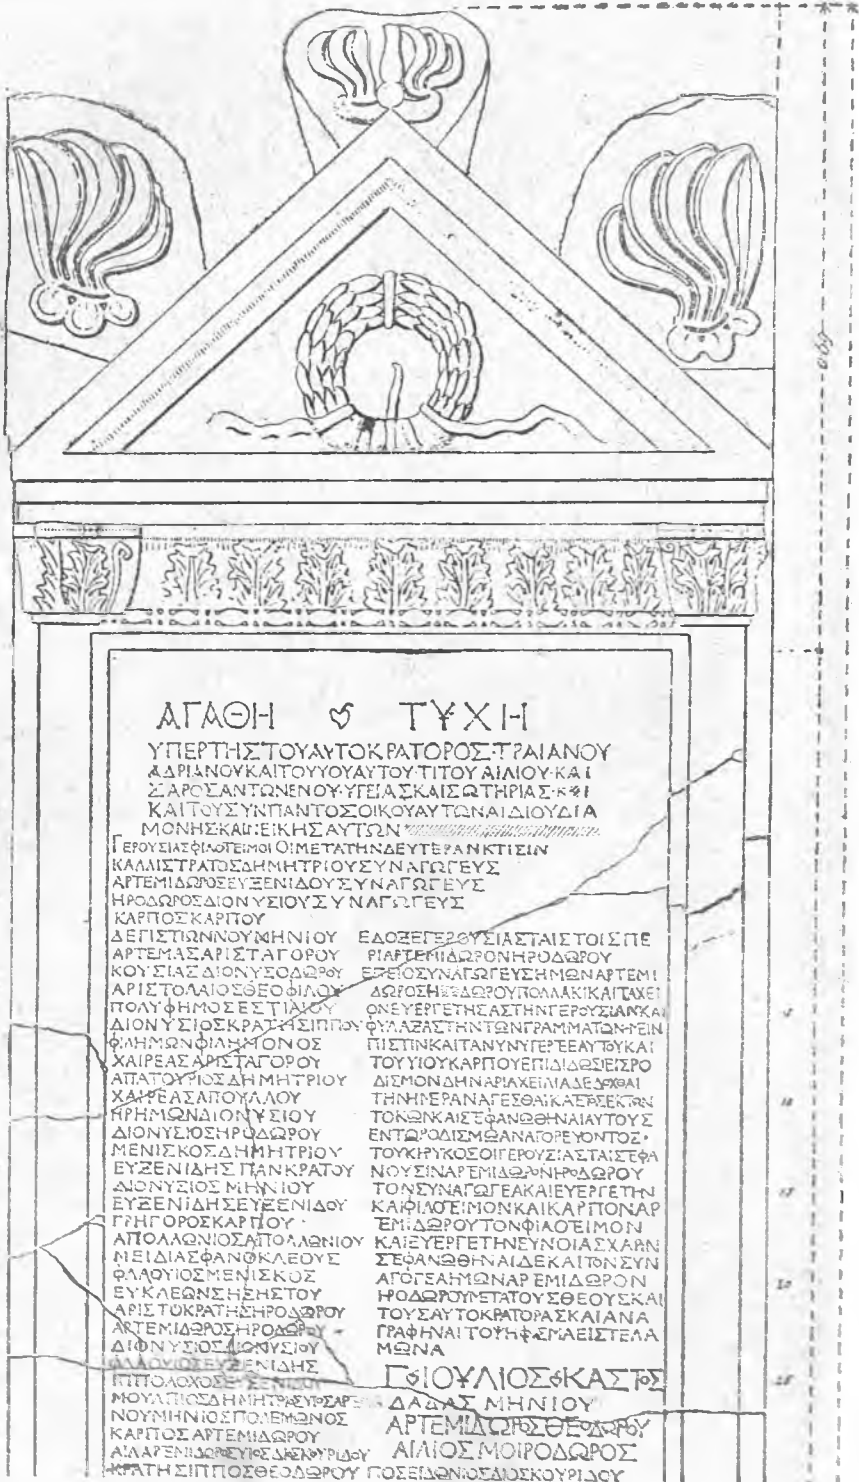 ΑΓΑΘΗ ΤΥΧΗ
ΥΠΕΡΤΗΣΤΟΥΑΥΤΟΚΡΑΤΟΡΟΣ·ΤΡΑΙΑΝΟΥ
ΑΔΡΙΑΝΟΥΚΑΙΤΟΥΥΟΥΑΥΤΟΥ·ΤΙΤΟΥΑΙΛΙΟΥ·ΚΑΙ
ΣΑΡΟΣΑΝΤΩΝΕΝΟΥ·ΥΓΕΙΑΣΚΑΙΣΩΤΗΡΙΑΣ·
ΚΑΙΤΟΥΣΥΝΠΑΝΤΟΣΟΙΚΟΥΑΥΤΩΝΑΙΔΙΟΥΔΙΑ
ΜΟΝΗΣΚΑΙΝΕΙΚΗΣΑΥΤΩΝ
ΓΕΡΟΥΣΙΑΣΦΙΛΟΤΕΙΜΟΙΟΙΜΕΤΑΤΗΝΔΕΥΤΕΡΑΝΚΤΙΣΙΝ
ΚΑΛΛΙΣΤΡΑΤΟΣΔΗΜΗΤΡΙΟΥΣΥΝΑΓΩΓΕΥΣ
ΑΡΤΕΜΙΔΩΡΟΣΕΥΞΕΝΙΔΟΥΣΥΝΑΓΩΓΕΥΣ
ΗΡΟΔΩΡΟΣΔΙΟΝΥΣΙΟΥΣΥΝΑΓΩΓΕΥΣ
ΚΑΡΠΟΣΚΑΡΠΟΥ
ΔΕΓΙΣΤΙΩΝΝΟΥΜΗΝΙΟΥ
ΑΡΤΕΜΑΣΑΡΙΣΤΑΓΟΡΟΥ
ΚΟΥΣΙΑΣΔΙΟΝΥΣΟΔΩΡΟΥ
ΑΡΙΣΤΟΛΑΙΟΣΘΕΟΦΙΛΟΥ
ΠΟΛΥΦΗΜΟΣΕΣΤΙΑΙΟΥ
ΔΙΟΝΥΣΙΟΣΚΡΑΤΗΣΙΠΠΟΥ
ΦΙΛΗΜΩΝΦΙΛΗΜΟΝΟΣ
ΧΑΙΡΕΑΣΑΡΙΣΤΑΓΟΡΟΥ
ΑΠΑΤΟΥΡΙΟΣΔΗΜΗΤΡΙΟΥ
ΧΑΙΡΕΑΣΑΠΟΥΛΛΟΥ
ΗΡΗΜΩΝΔΙΟΝΥΣΙΟΥ
ΔΙΟΝΥΣΙΟΣΗΡΟΔΩΡΟΥ
ΜΕΝΙΣΚΟΣΔΗΜΗΤΡΙΟΥ
ΕΥΞΕΝΙΔΗΣΠΑΝΚΡΑΤΟΥ
ΔΙΟΝΥΣΙΟΣΜΗΝΙΟΥ
ΕΥΞΕΝΙΔΗΣΕΥΞΕΝΙΔΟΥ
ΓΡΗΓΟΡΟΣΚΑΡΠΟΥ·
ΑΠΟΛΛΩΝΙΟΣΑΠΟΛΛΩΝΙΟΥ
ΜΕΙΔΙΑΣΦΑΝΟΚΛΕΟΥΣ
ΦΛΑΟΥΙΟΣΜΕΝΙΣΚΟΣ
ΕΥΚΛΕΩΝΣΗΣΗΣΤΟΥ
ΑΡΙΣΤΟΚΡΑΤΗΣΗΡΟΔΩΡΟΥ
ΑΡΤΕΜΙΔΩΡΟΣΗΡΟΔΩΡΟΥ
ΔΙΟΝΥΣΙΟΣΔΙΟΝΥΣΙΟΥ
ΦΛΑΟΥΙΟΣΕΥΞΕΝΙΔΗΣ
ΙΠΠΟΛΟΧΟΣΕΥΞΕΝΙΔΟΥ
ΝΟΥΜΗΝΙΟΣΠΟΛΕΜΩΝΟΣ
ΚΑΡΠΟΣΑΡΤΕΜΙΔΩΡΟΥ
ΚΡΑΤΗΣΙΠΠΟΣΘΕΟΔΩΡΟΥ
ΕΔΟΞΕΓΕΡΟΥΣΙΑΣΤΑΙΣΤΟΙΣΠΕ
ΡΙΑΡΤΕΜΙΔΩΡΟΝΗΡΟΔΩΡΟΥ
ΕΠΕΙΟΣΥΝΑΓΩΓΕΥΣΗΜΩΝΑΡΤΕΜΙ
ΔΩΡΟΣΗΡΟΔΩΡΟΥΠΟΛΛΑΚΙΚΑΙΤΑΧΕΙ
ΟΝΕΥΕΡΓΕΤΗΣΑΣΤΗΝΓΕΡΟΥΣΙΑΝΚΑΙ
ΦΥΛΑΞΑΣΤΗΝΤΩΝΓΡΑΜΜΑΤΩΝΗΜΕΙΝ
ΠΙΣΤΙΝΚΑΙΤΑΝΥΝΥΠΕΡΤΕΕΑΥΤΟΥΚΑΙ
ΤΟΥΥΙΟΥΚΑΡΠΟΥΕΠΙΔΙΔΩΣΙΕΙΣΡΟ
ΔΙΣΜΟΝΔΗΝΑΡΙΑΧΕΙΛΙΑΔΕΔΟΧΘΑΙ
ΤΗΝΗΜΕΡΑΝΑΓΕΣΘΑΙΚΑΤΕΤΟΣΕΚΤΩΝ
ΤΟΚΩΝΚΑΙΣΤΕΦΑΝΩΘΗΝΑΙΑΥΤΟΥΣ
ΕΝΤΩΡΟΔΙΣΜΩΑΝΑΓΟΡΕΥΟΝΤΟΣ·
ΤΟΥΚΗΡΥΚΟΣΟΙΓΕΡΟΥΣΙΑΣΤΑΙΣΤΕΦΑ
ΝΟΥΣΙΝΑΡΤΕΜΙΔΩΡΟΝΗΡΟΔΩΡΟΥ
ΤΟΝΣΥΝΑΓΩΓΕΑΚΑΙΕΥΕΡΓΕΤΗΝ
ΚΑΙΦΙΛΟΤΕΙΜΟΝΚΑΙΚΑΡΠΟΝΑΡ
ΤΕΜΙΔΩΡΟΥΤΟΝΦΙΛΟΤΕΙΜΟΝ
ΚΑΙΕΥΕΡΓΕΤΗΝΕΥΝΟΙΑΣΧΑΡΙΝ
ΣΤΕΦΑΝΩΘΗΝΑΙΔΕΚΑΙΤΟΝΣΥΝ
ΑΓΩΓΕΑΗΜΩΝΑΡΤΕΜΙΔΩΡΟΝ
ΗΡΟΔΩΡΟΥΜΕΤΑΤΟΥΣΘΕΟΥΣΚΑΙ
ΤΟΥΣΑΥΤΟΚΡΑΤΟΡΑΣΚΑΙΑΝΑ
ΓΡΑΦΗΝΑΙΤΟΨΗΦΙΣΜΑΕΙΣΤΕΛΑ
ΜΩΝΑ
Γ ΙΟΥΛΙΟΣ ΚΑΣΤΟΣ
ΔΑΔΑΣ ΜΗΝΙΟΥ
ΑΡΤΕΜΙΔΩΡΟΣΘΕΟΔΩΡΟΥ
ΑΙΛΙΟΣ ΜΟΙΡΟΔΩΡΟΣ
ΠΟΣΕΙΔΩΝΙΟΣΔΙΟΣΚΟΥΡΙΔΟΥ
5
10
15
20
25